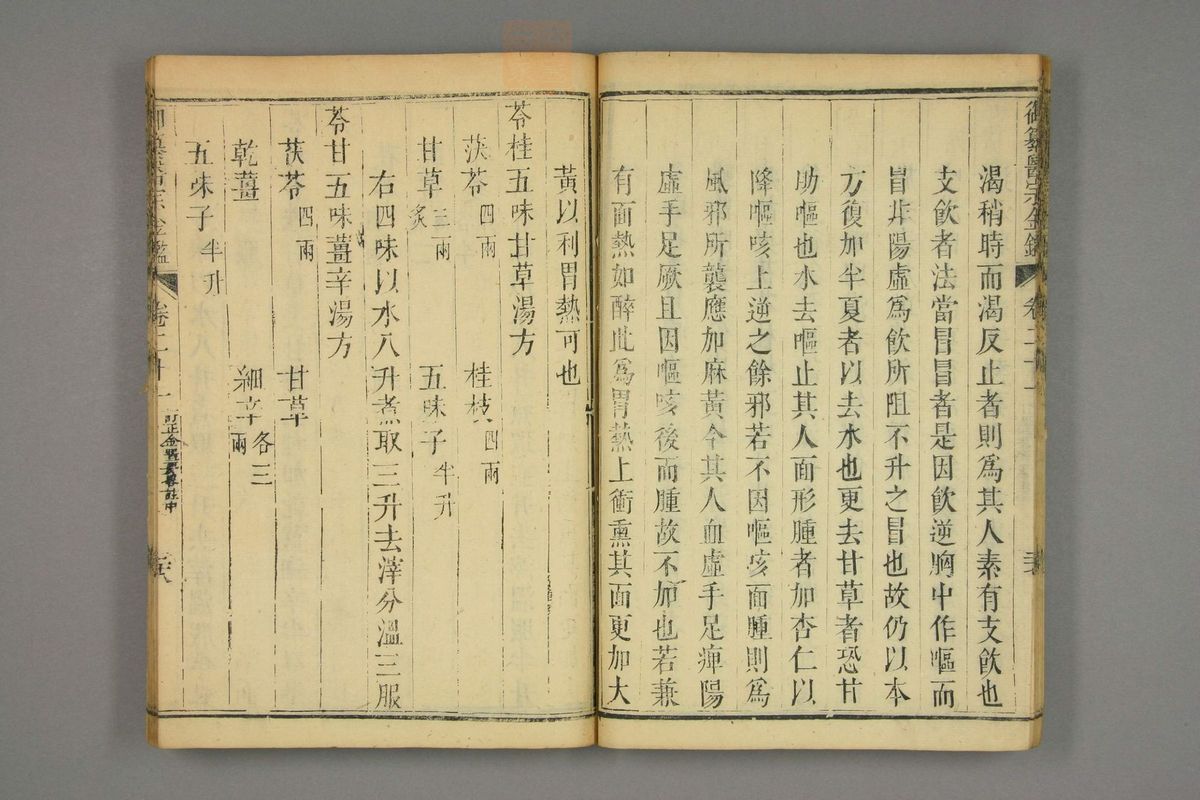 御纂醫宗金鑑 卷二十一
渴稍時而渴反止者則為其人素有支飲也
支飲者法當冒冒者是因飲逆胸中作嘔而
冒非陽虛為飲所阻不升之冒也故仍以本
方復加半夏者以去水也更去甘草者恐甘
助嘔也水去嘔止其人面形腫者加杏仁以
降嘔咳上逆之餘邪若不因嘔咳面腫則為
風邪所襲應加麻黃今其人血虛手足痺陽
虛手足厥且因嘔咳後而腫故不加也若兼
有面熱如醉此為胃熱上衝熏其面更加大
黃以利胃熱可也
苓桂五味甘草湯方
茯苓四兩 桂枝四兩
甘草三兩炙 五味子半升
右四味以水八升煮取三升去滓分溫三服
苓甘五味薑辛湯方
茯苓四兩 甘草
乾薑 細辛各三兩
五味子半升
御纂醫宗金鑑 卷二十一 訂正金匱要畧註中